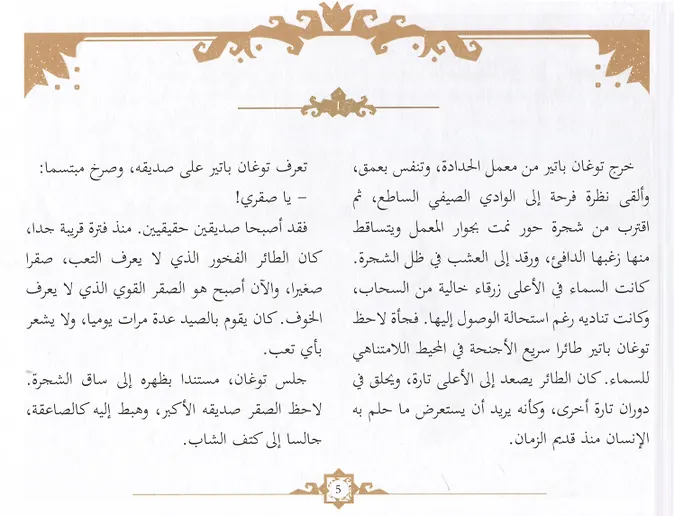 1
خرج توغان باتير من معمل الحدادة، وتنفس بعمق،
وألقى نظرة فرحة إلى الوادي الصيفي الساطع، ثم
اقترب من شجرة حور نمت بجوار المعمل ويتساقط
منها زغبها الدافئ، ورقد إلى العشب في ظل الشجرة.
كانت السماء في الأعلى زرقاء خالية من السحاب،
وكانت تناديه رغم استحالة الوصول إليها. فجأة لاحظ
توغان باتير طائرا سريع الأجنحة في المحيط اللامتناهي
للسماء. كان الطائر يصعد إلى الأعلى تارة، ويحلق في
دوران تارة أخرى، وكأنه يريد أن يستعرض ما حلم به
الإنسان منذ قديم الزمان.
تعرف توغان باتير على صديقه، وصرخ مبتسما:
– يا صقري!
فقد أصبحا صديقين حقيقيين. منذ فترة قريبة جدا،
كان الطائر الفخور الذي لا يعرف التعب، صقرا
صغيرا، والآن أصبح هو الصقر القوي الذي لا يعرف
الخوف. كان يقوم بالصيد عدة مرات يوميا، ولا يشعر
بأي تعب.
جلس توغان، مستندا بظهره إلى ساق الشجرة.
لاحظ الصقر صديقه الأكبر، وهبط إليه كالصاعقة،
جالسا إلى كتف الشاب.
5